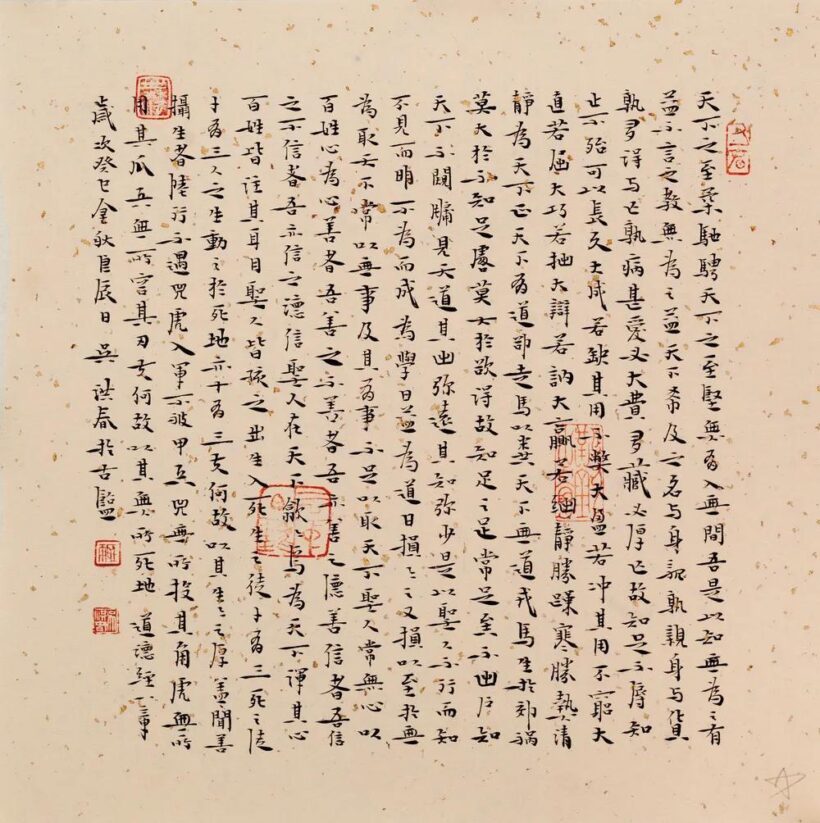 天下之至柔馳騁天下之至堅無有入無間吾是以知無為之有
益不言之教無為之益天下希及之名与身孰親身与貨
孰多得与亡孰病甚愛必大費多藏必厚亡故知足不辱知
止不殆可以長久大成若缺其用不弊大盈若冲其用不窮大
直若屈大巧若拙大辯若訥大贏若絀靜勝躁寒勝熱清
靜為天下正天下有道卻走馬以糞天下無道戎馬生於郊禍
莫大於不知足莫大於欲得故知足之足常足矣不出户知
天下不闚牖見天道其出弥遠其知弥少是以聖人不行而知
不見而明不為而成為學日益為道日損損之又損以至於無
為取天下常以無事及其有事不足以取天下聖人常無心以
百姓心為心善者吾善之不善者吾亦善之德善信者吾信
之不信者吾亦信之德信聖人在天下歙歙焉為天下渾其心
百姓皆注其耳目聖人皆孩之出生入死生之徒十有三死之徒
十有三人之生動之於死地亦十有三夫何故以其生生之厚蓋聞善
攝生者陸行不遇兕虎入軍不被甲兵兕無所投其角虎無所
用其爪兵無所容其刃夫何故以其無所死地 道德經下章
歲次癸巳金秋良辰日 吳洪春於古監